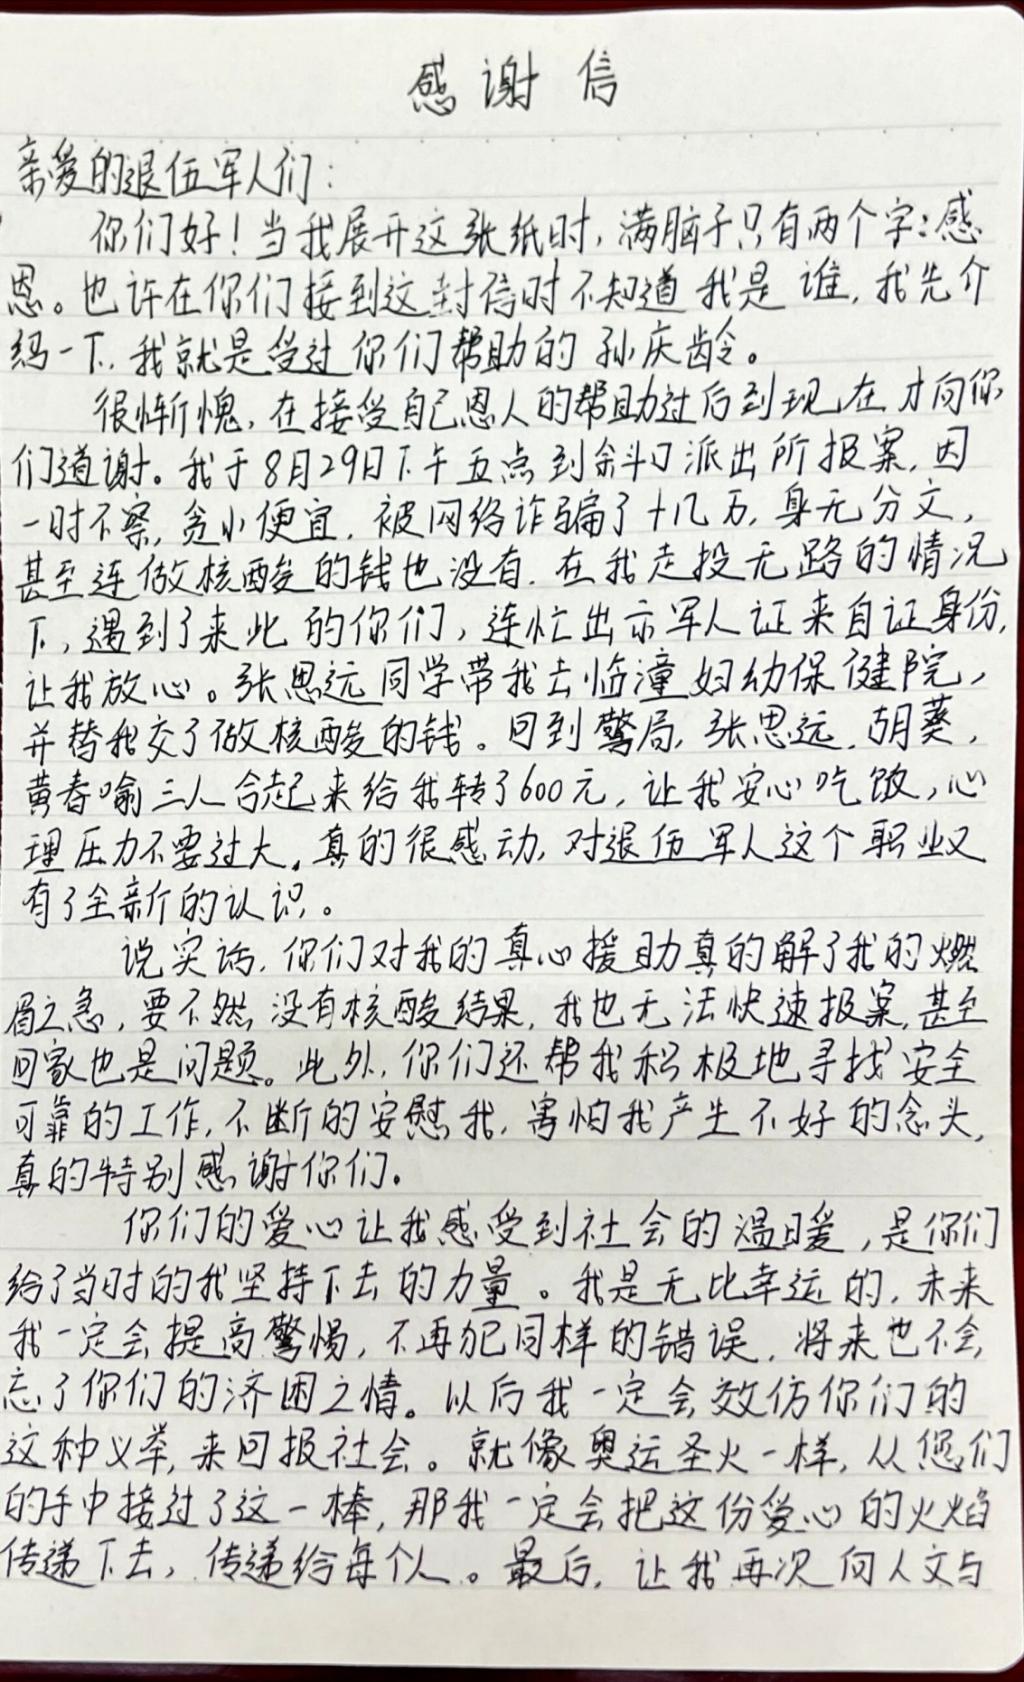 感谢信
亲爱的退伍军人们：
你们好！当我展开这张纸时，满脑子只有两个字：感
恩。也许在你们接到这封信时不知道我是谁，我先介
绍一下，我就是受过你们帮助的孙庆龄。
很惭愧，在接受自己恩人的帮助过后到现在才向你
们道谢。我于8月29日下午五点到斜口派出所报案，因
一时不察，贪小便宜，被网络诈骗了十几万，身无分文，
甚至连做核酸的钱也没有，在我走投无路的情况
下，遇到了来此的你们，连忙出示军人证来自证身份，
让我放心。张思远同学带我去临潼妇幼保健院，
并替我交了做核酸的钱。回到警局，张思远、胡葵，
黄春喻三人合起来给我转了600元，让我安心吃饭，心
理压力不要过大，真的很感动，对退伍军人这个职业又
有了全新的认识。
说实话，你们对我的真心援助真的解了我的燃
眉之急，要不然没有核酸结果，我也无法快速报案，甚至
回家也是问题。此外，你们还帮我积极地寻找安全
可靠的工作，不断的安慰我，害怕我产生不好的念头，
真的特别感谢你们。
你们的爱心让我感受到社会的温暖，是你们
给了当时的我坚持下去的力量。我是无比幸运的，未来
我一定会提高警惕，不再犯同样的错误，将来也不会
忘了你们的济困之情。以后我一定会效仿你们的
这种义举，来回报社会。就像奥运圣火一样，从您们
的手中接过了这一棒，那我一定会把这份爱心的火焰
传递下去，传递给每个人。最后，让我再次向人文与